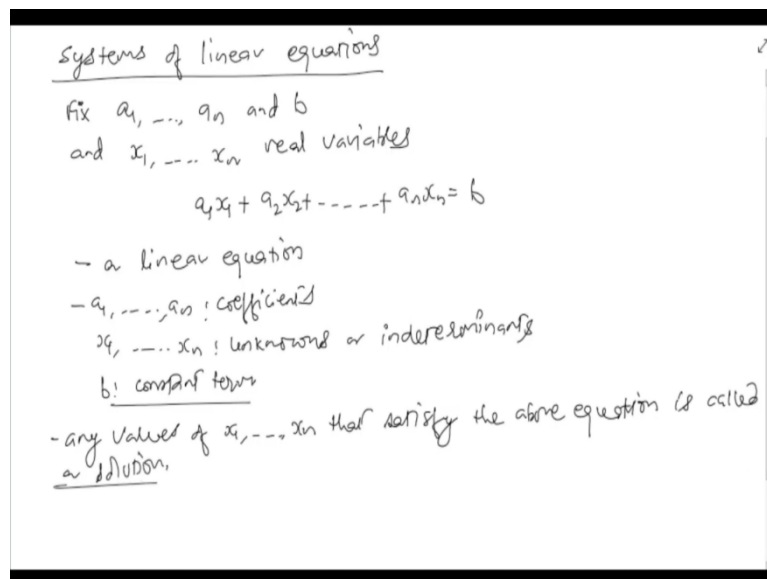 Systems of linear equations
Fix a₁, ..., aₙ and b
and x₁, .... xₙ real variables
a₁x₁ + a₂x₂ + ..... + aₙxₙ = b
- a linear equation
- a₁, ....., aₙ : coefficients
x₁, ..... xₙ : unknowns or indereminants
b : constant term
- any values of x₁, ..., xₙ that satisfy the above equation is called
a solution.